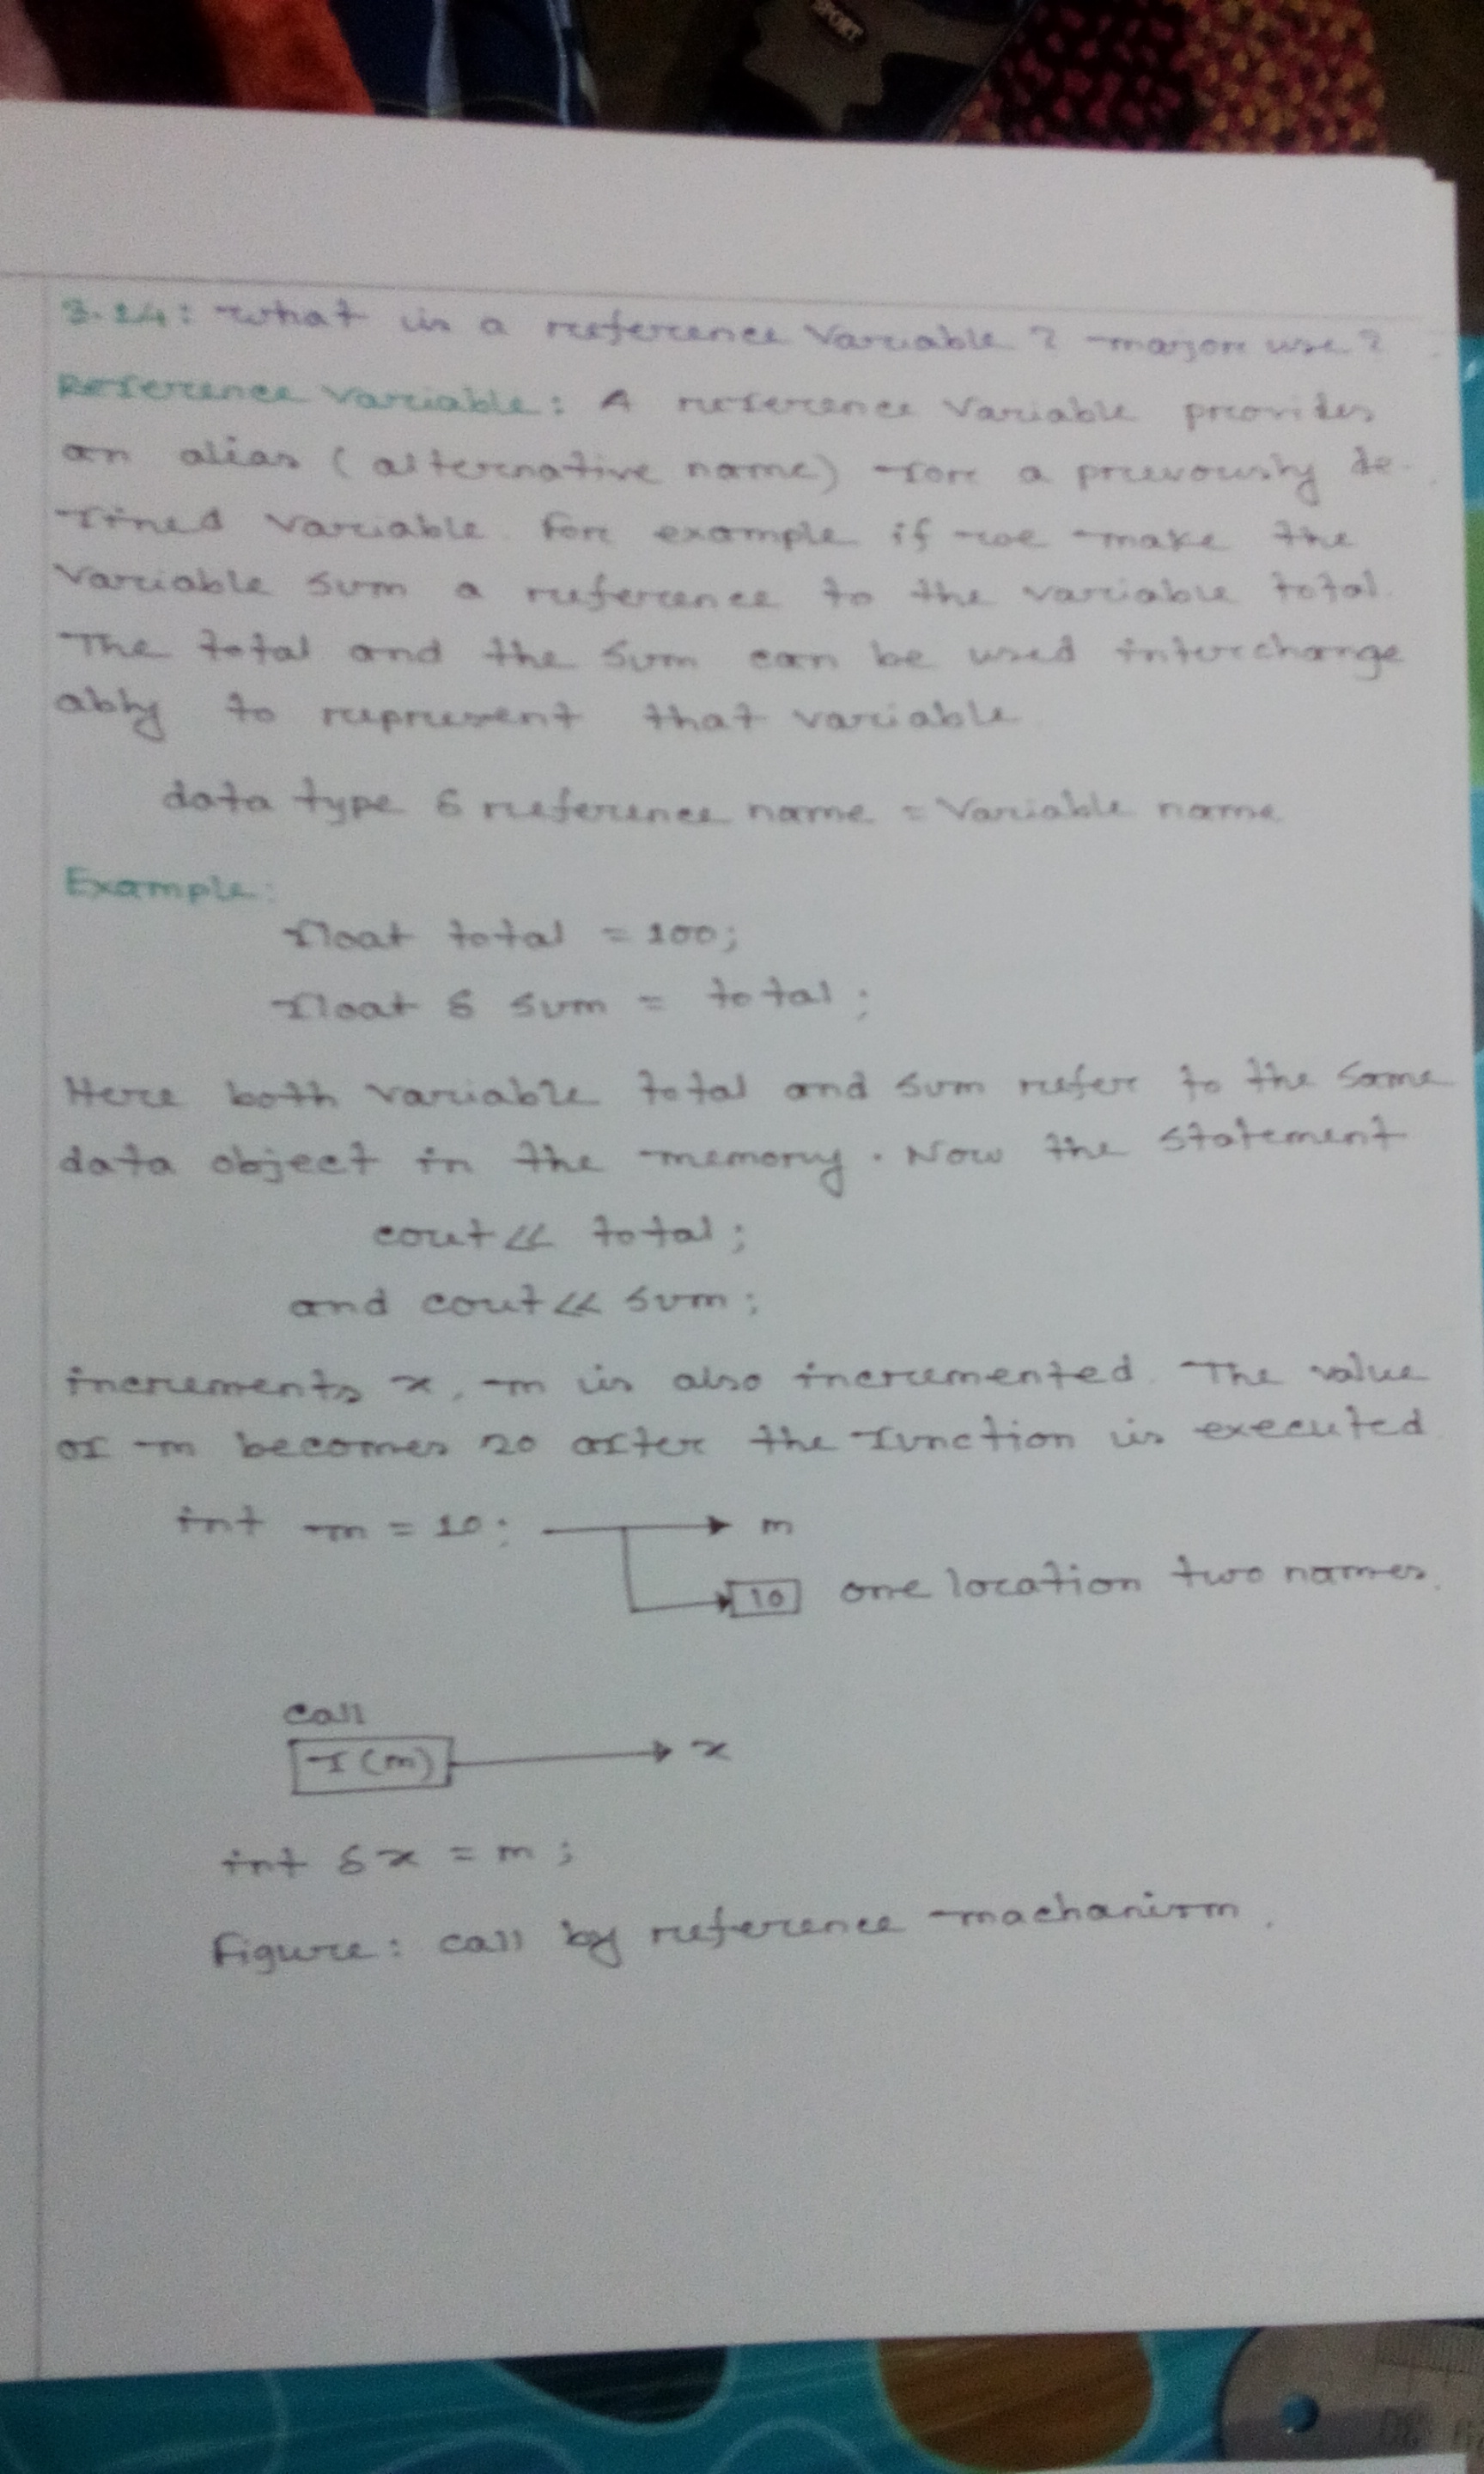 SPORT
3.14: What is a reference Variable? major use?
Reference Variable: A reference Variable provides
an alias (alternative name) for a prevously de-
fined Variable. For example if we make the
Variable sum a reference to the variable total.
The total and the sum can be used interchange
ably to represent that variable
data type & reference name = Variable name
Example:
float total = 100;
float & sum = total;
Here both variable total and sum refer to the same
data object in the memory. Now the statement
cout << total;
and cout << sum;
increments x, m is also incremented. The value
of m becomes 20 after the function is executed
int m = 10; m
10 one location two names.
call
f(m) x
int &x = m;
Figure: call by reference machanism.